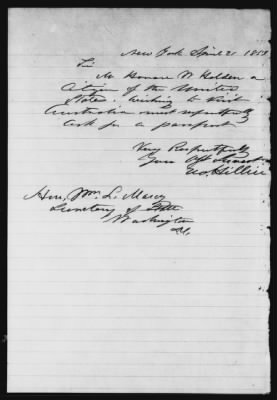 New York April 21 185
Sir
Mr Horace W Holden a
Citizen of the United
States wishing to visit
Australia most respectfully
ask for a passport
Very Respectfully
Your Obt Servant
Hon. Wm. L. Marcy
Secretary of State
Washington
D.C.